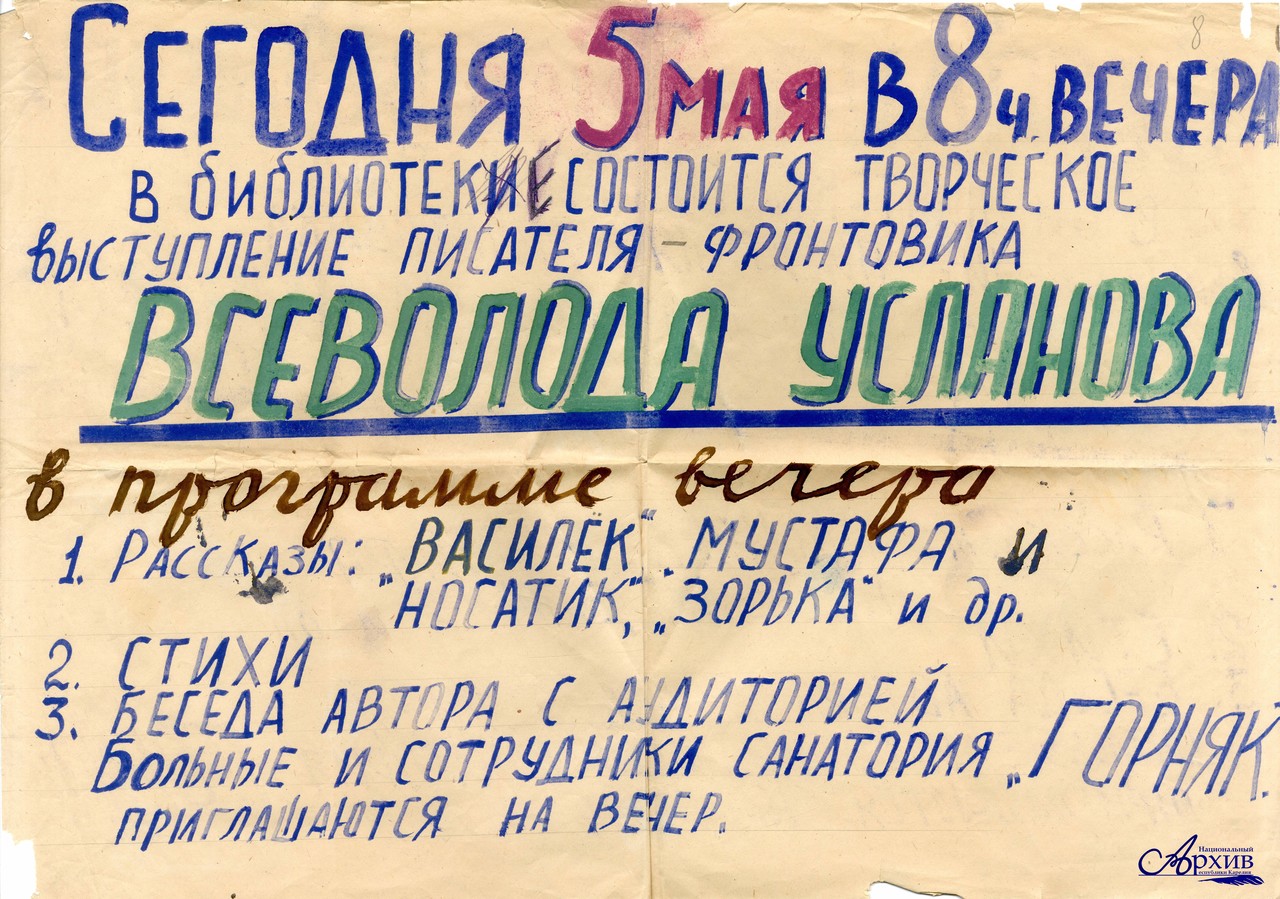 8
СЕГОДНЯ 5 МАЯ В 8 ч. ВЕЧЕРА
В БИБЛИОТЕКЕ СОСТОИТСЯ ТВОРЧЕСКОЕ
ВЫСТУПЛЕНИЕ ПИСАТЕЛЯ - ФРОНТОВИКА
ВСЕВОЛОДА УСЛАНОВА
в программе вечера
1. РАССКАЗЫ: „ВАСИЛЕК", „МУСТАФА И
НОСАТИК", „ЗОРЬКА" и др.
2. СТИХИ
3. БЕСЕДА АВТОРА С АУДИТОРИЕЙ
БОЛЬНЫЕ И СОТРУДНИКИ САНАТОРИЯ „ГОРНЯК"
ПРИГЛАШАЮТСЯ НА ВЕЧЕР.
Национальный
Архив
Республики Карелия